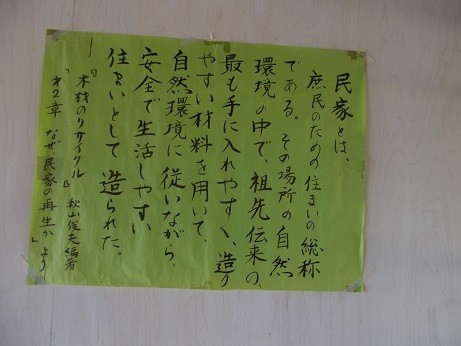 民家とは、
庶民のための住まいの総称
である。その場所の自然
環境の中で、祖先伝来の、
最も手に入れやすく、造り
やすい材料を用いて、
自然環境に従いながら、
安全で生活しやすい
住まいとして造られた。
『木材のリサイクル』秋山俊夫編著
「第2章 なぜ民家の再生か」より